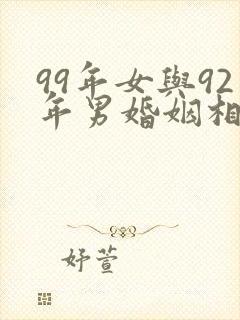 99年女與92
年男婚姻相
妤萱